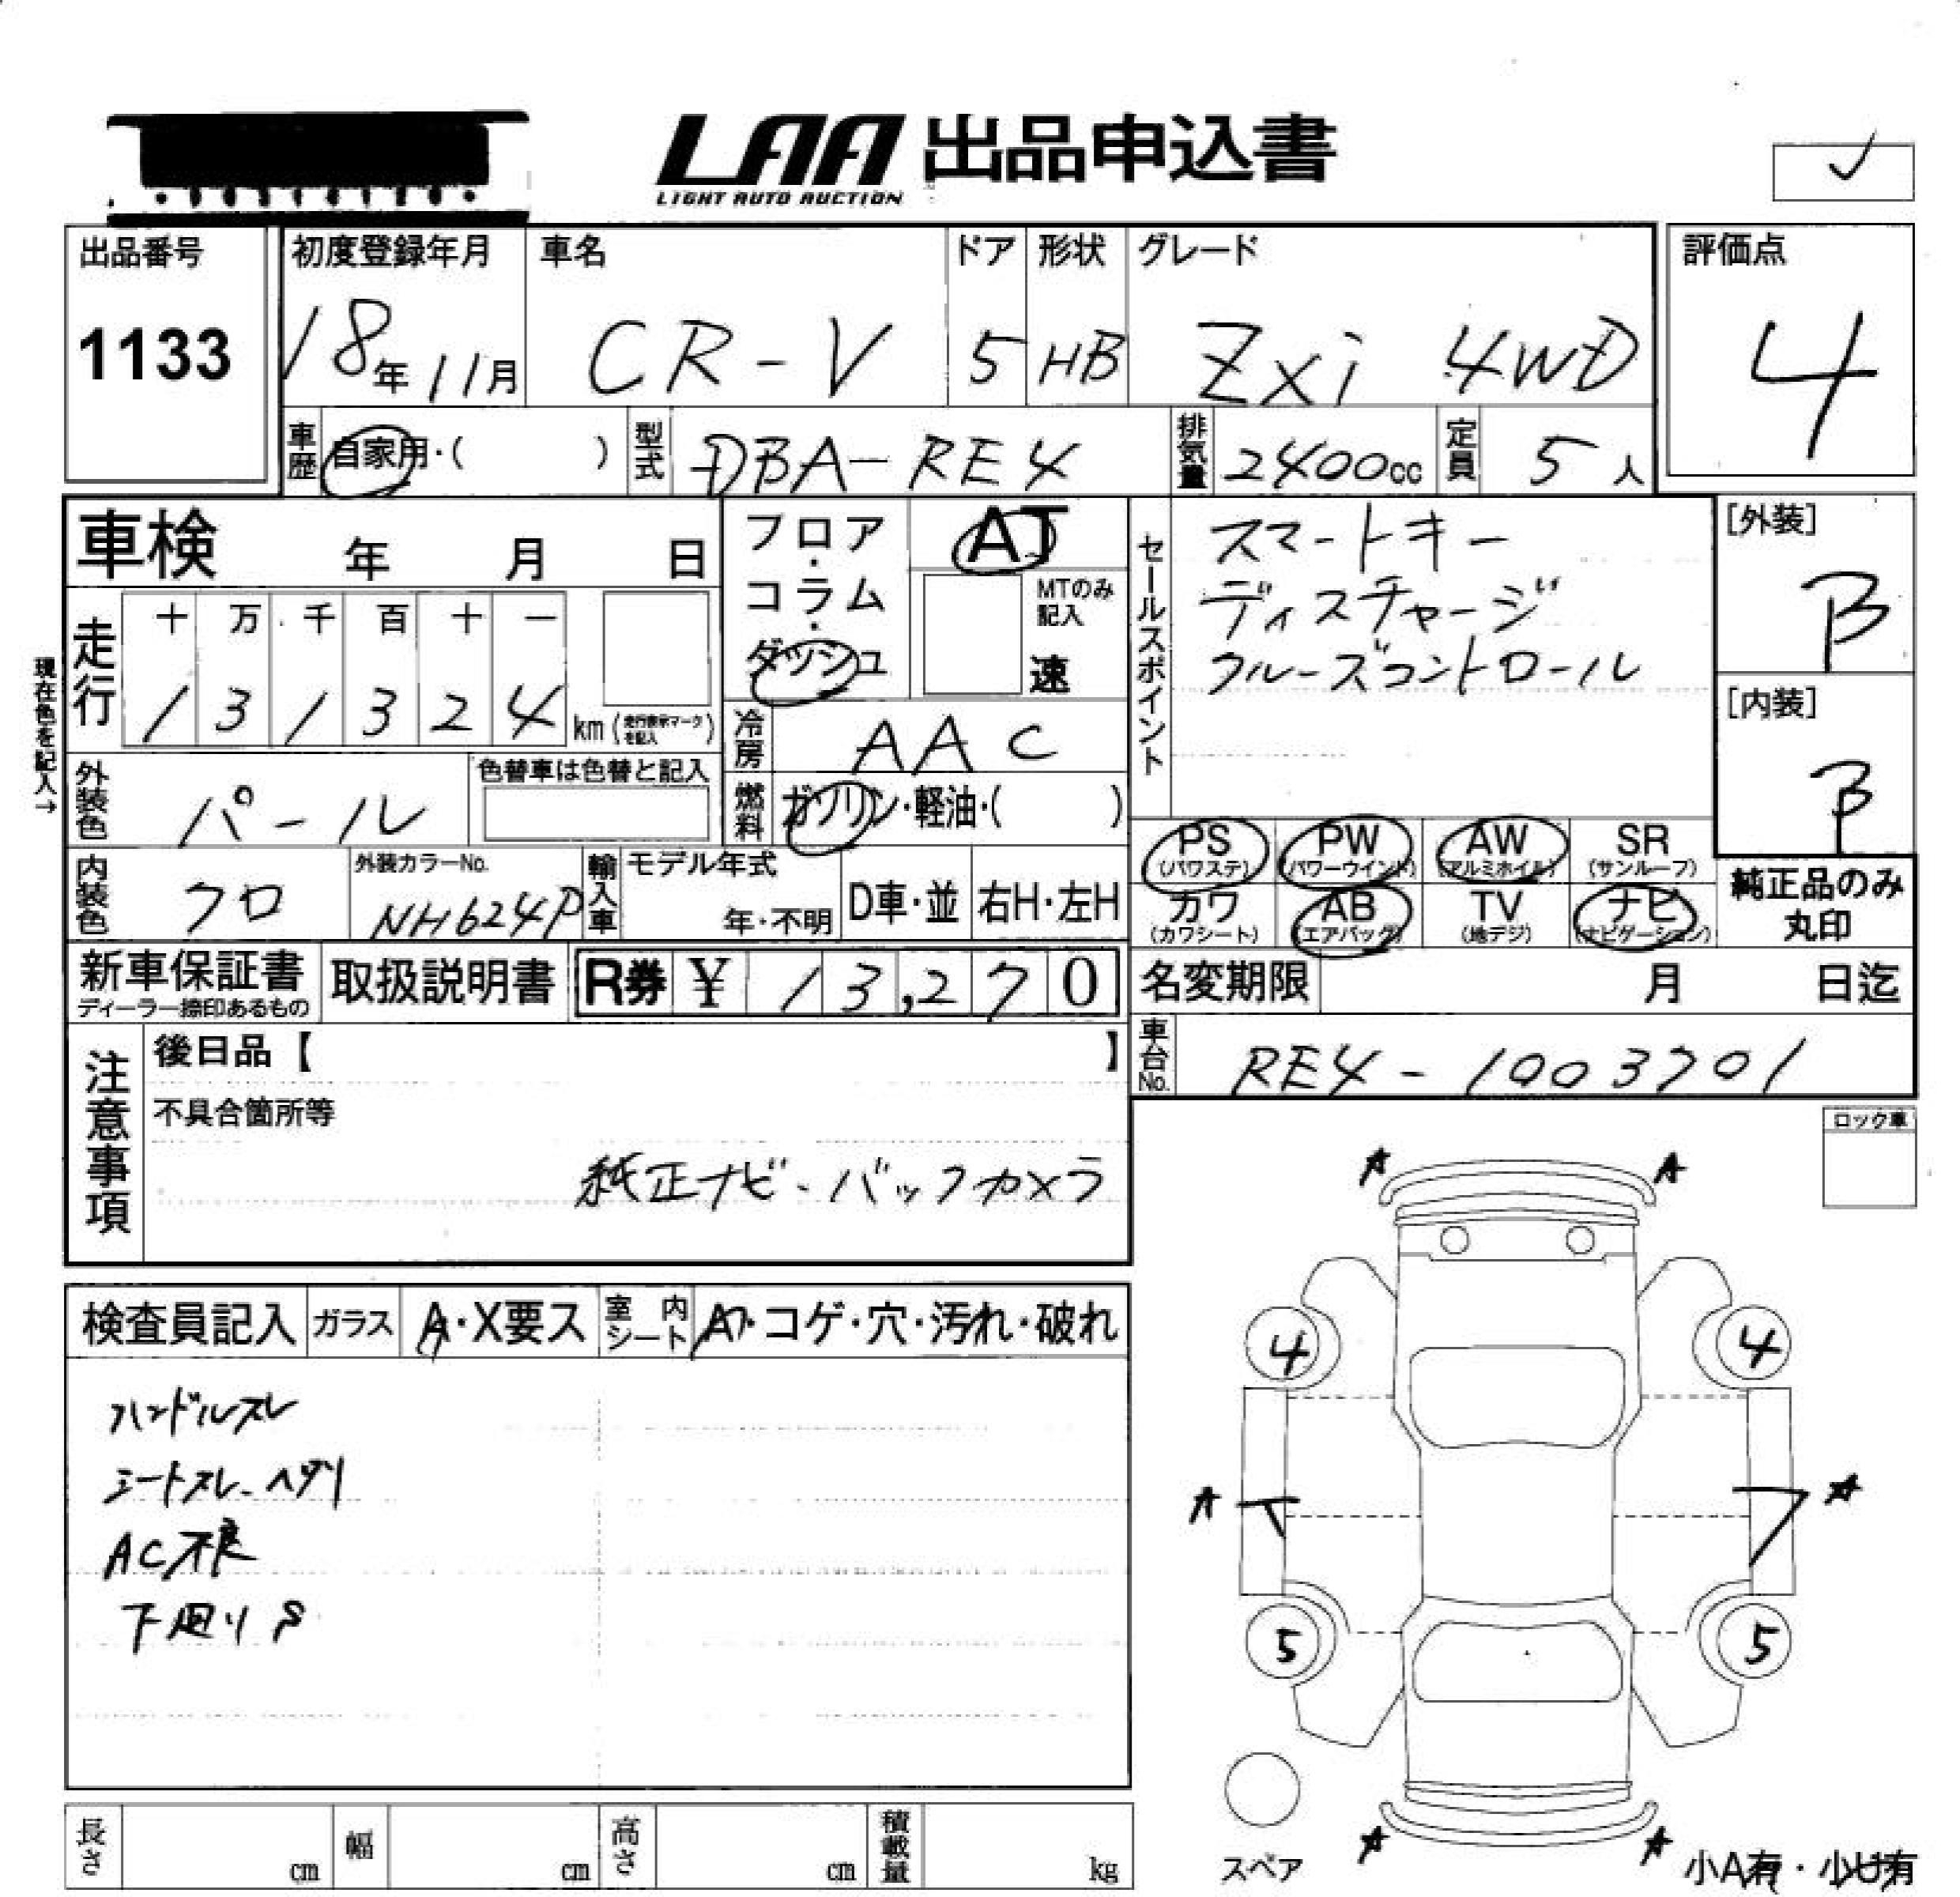 LAA 出品申込書
LIGHT AUTO AUCTION
出品番号
1133
初度登録年月
18年11月
車名
CR-V
ドア
5
形状
HB
グレード
Zxi 4WD
評価点
4
車歴
自家用・( )
型式
DBA-RE4
排気量
2400cc
定員
5人
車検 年 月 日
フロア・コラム・ダッシュ
AT
MTのみ記入
速
セールスポイント
スマートキー
ディスチャージ
クルーズコントロール
[外装]
B
[内装]
B
現在色を記入→
走行
十 万 千 百 十 一
1 3 1 3 2 4 km (走行表示マークを記入)
冷房
AAC
外装色
パール
色替車は色替と記入
燃料
ガソリン・軽油・( )
PS (パワステ)
PW (パワーウインド)
AW (アルミホイル)
SR (サンルーフ)
カワ (カワシート)
AB (エアバック)
TV (地デジ)
ナビ (ナビゲーション)
純正品のみ丸印
内装色
クロ
外装カラーNo.
NH624P
輸入車
モデル年式
年・不明
D車・並
右H・左H
新車保証書
ディーラー捺印あるもの
取扱説明書
R券 ¥ 13,270
名変期限 月 日迄
車台No.
RE4-1003701
注意事項
後日品【 】
不具合箇所等
純正ナビ・バックカメラ
ロック車
検査員記入
ガラス
A・X要ス
室内シート
コゲ・穴・汚れ・破れ
ハンドルスレ
シートスレ・ヘタリ
AC不良
下廻りS
A A
4 4
A A
5 5
A A
スペア
小A有・小U有
長さ cm
幅 cm
高さ cm
積載量 kg